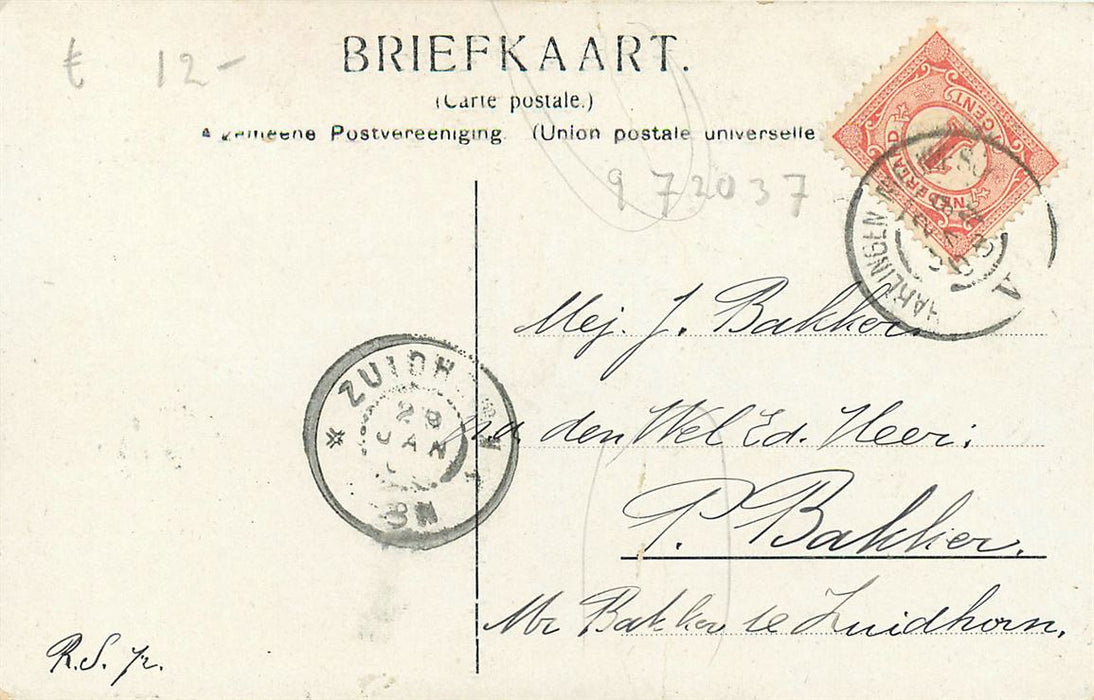 € 12-
BRIEFKAART.
(Carte postale.)
Algemeene Postvereeniging. (Union postale universelle
972037
NEDERLAND
CENT
HARLINGEN
Mej. J. Bakker
ZUIDH
28
JAN
8N
p/a. den Wel Ed. Heer:
P. Bakker.
Mr Bakker te Zuidhorn.
R.S. Jr.